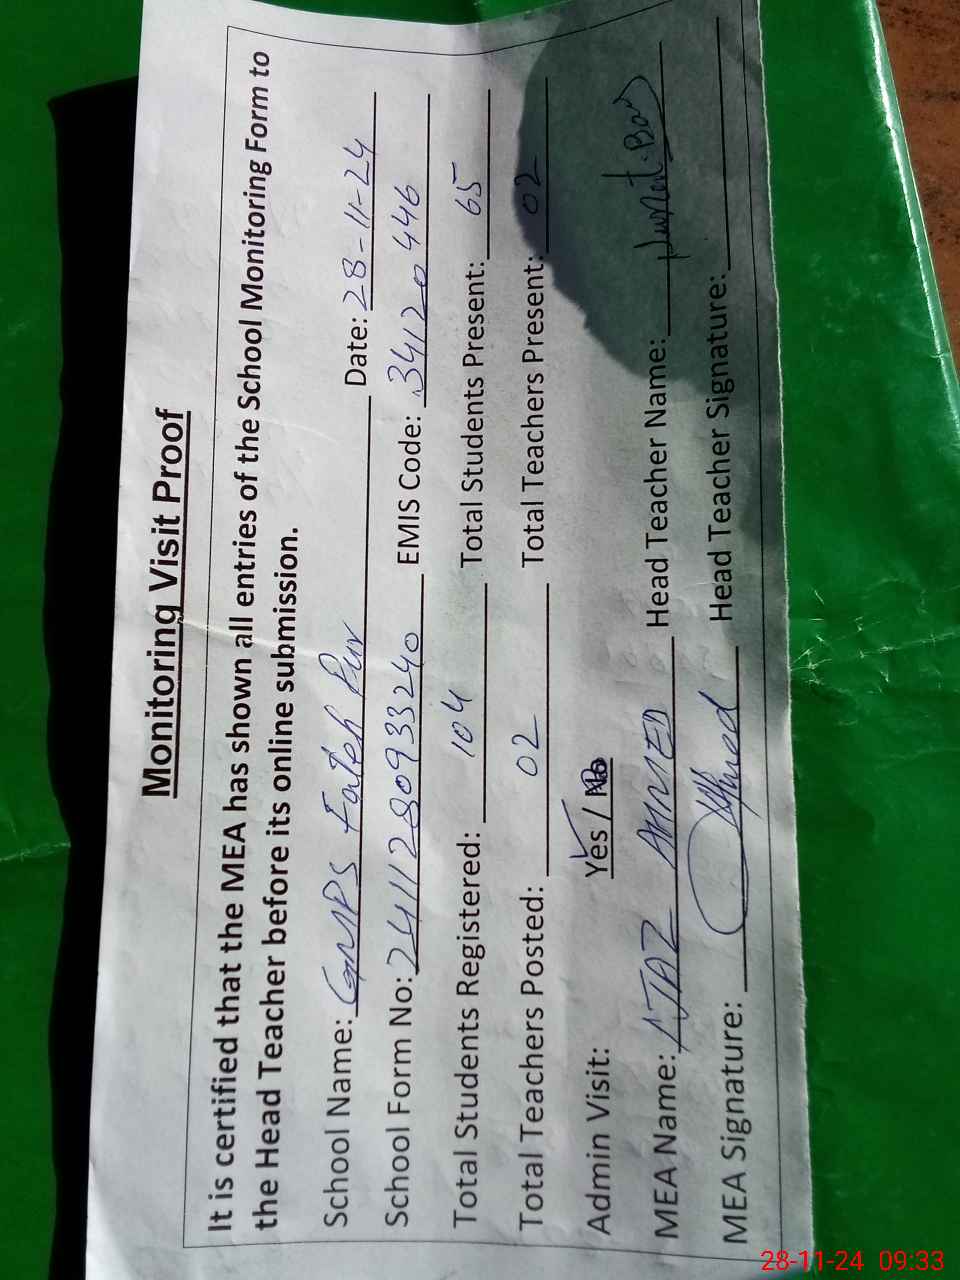 Monitoring Visit Proof
It is certified that the MEA has shown all entries of the School Monitoring Form to
the Head Teacher before its online submission.
School Name: GMPS Fateh Pur Date: 28-11-24
School Form No: 241128093240 EMIS Code: 34120446
Total Students Registered: 104 Total Students Present: 65
Total Teachers Posted: 02 Total Teachers Present: 02
Admin Visit: Yes / No
MEA Name: AJAZ AHMED Head Teacher Name:
MEA Signature: Head Teacher Signature:
28-11-24 09:33